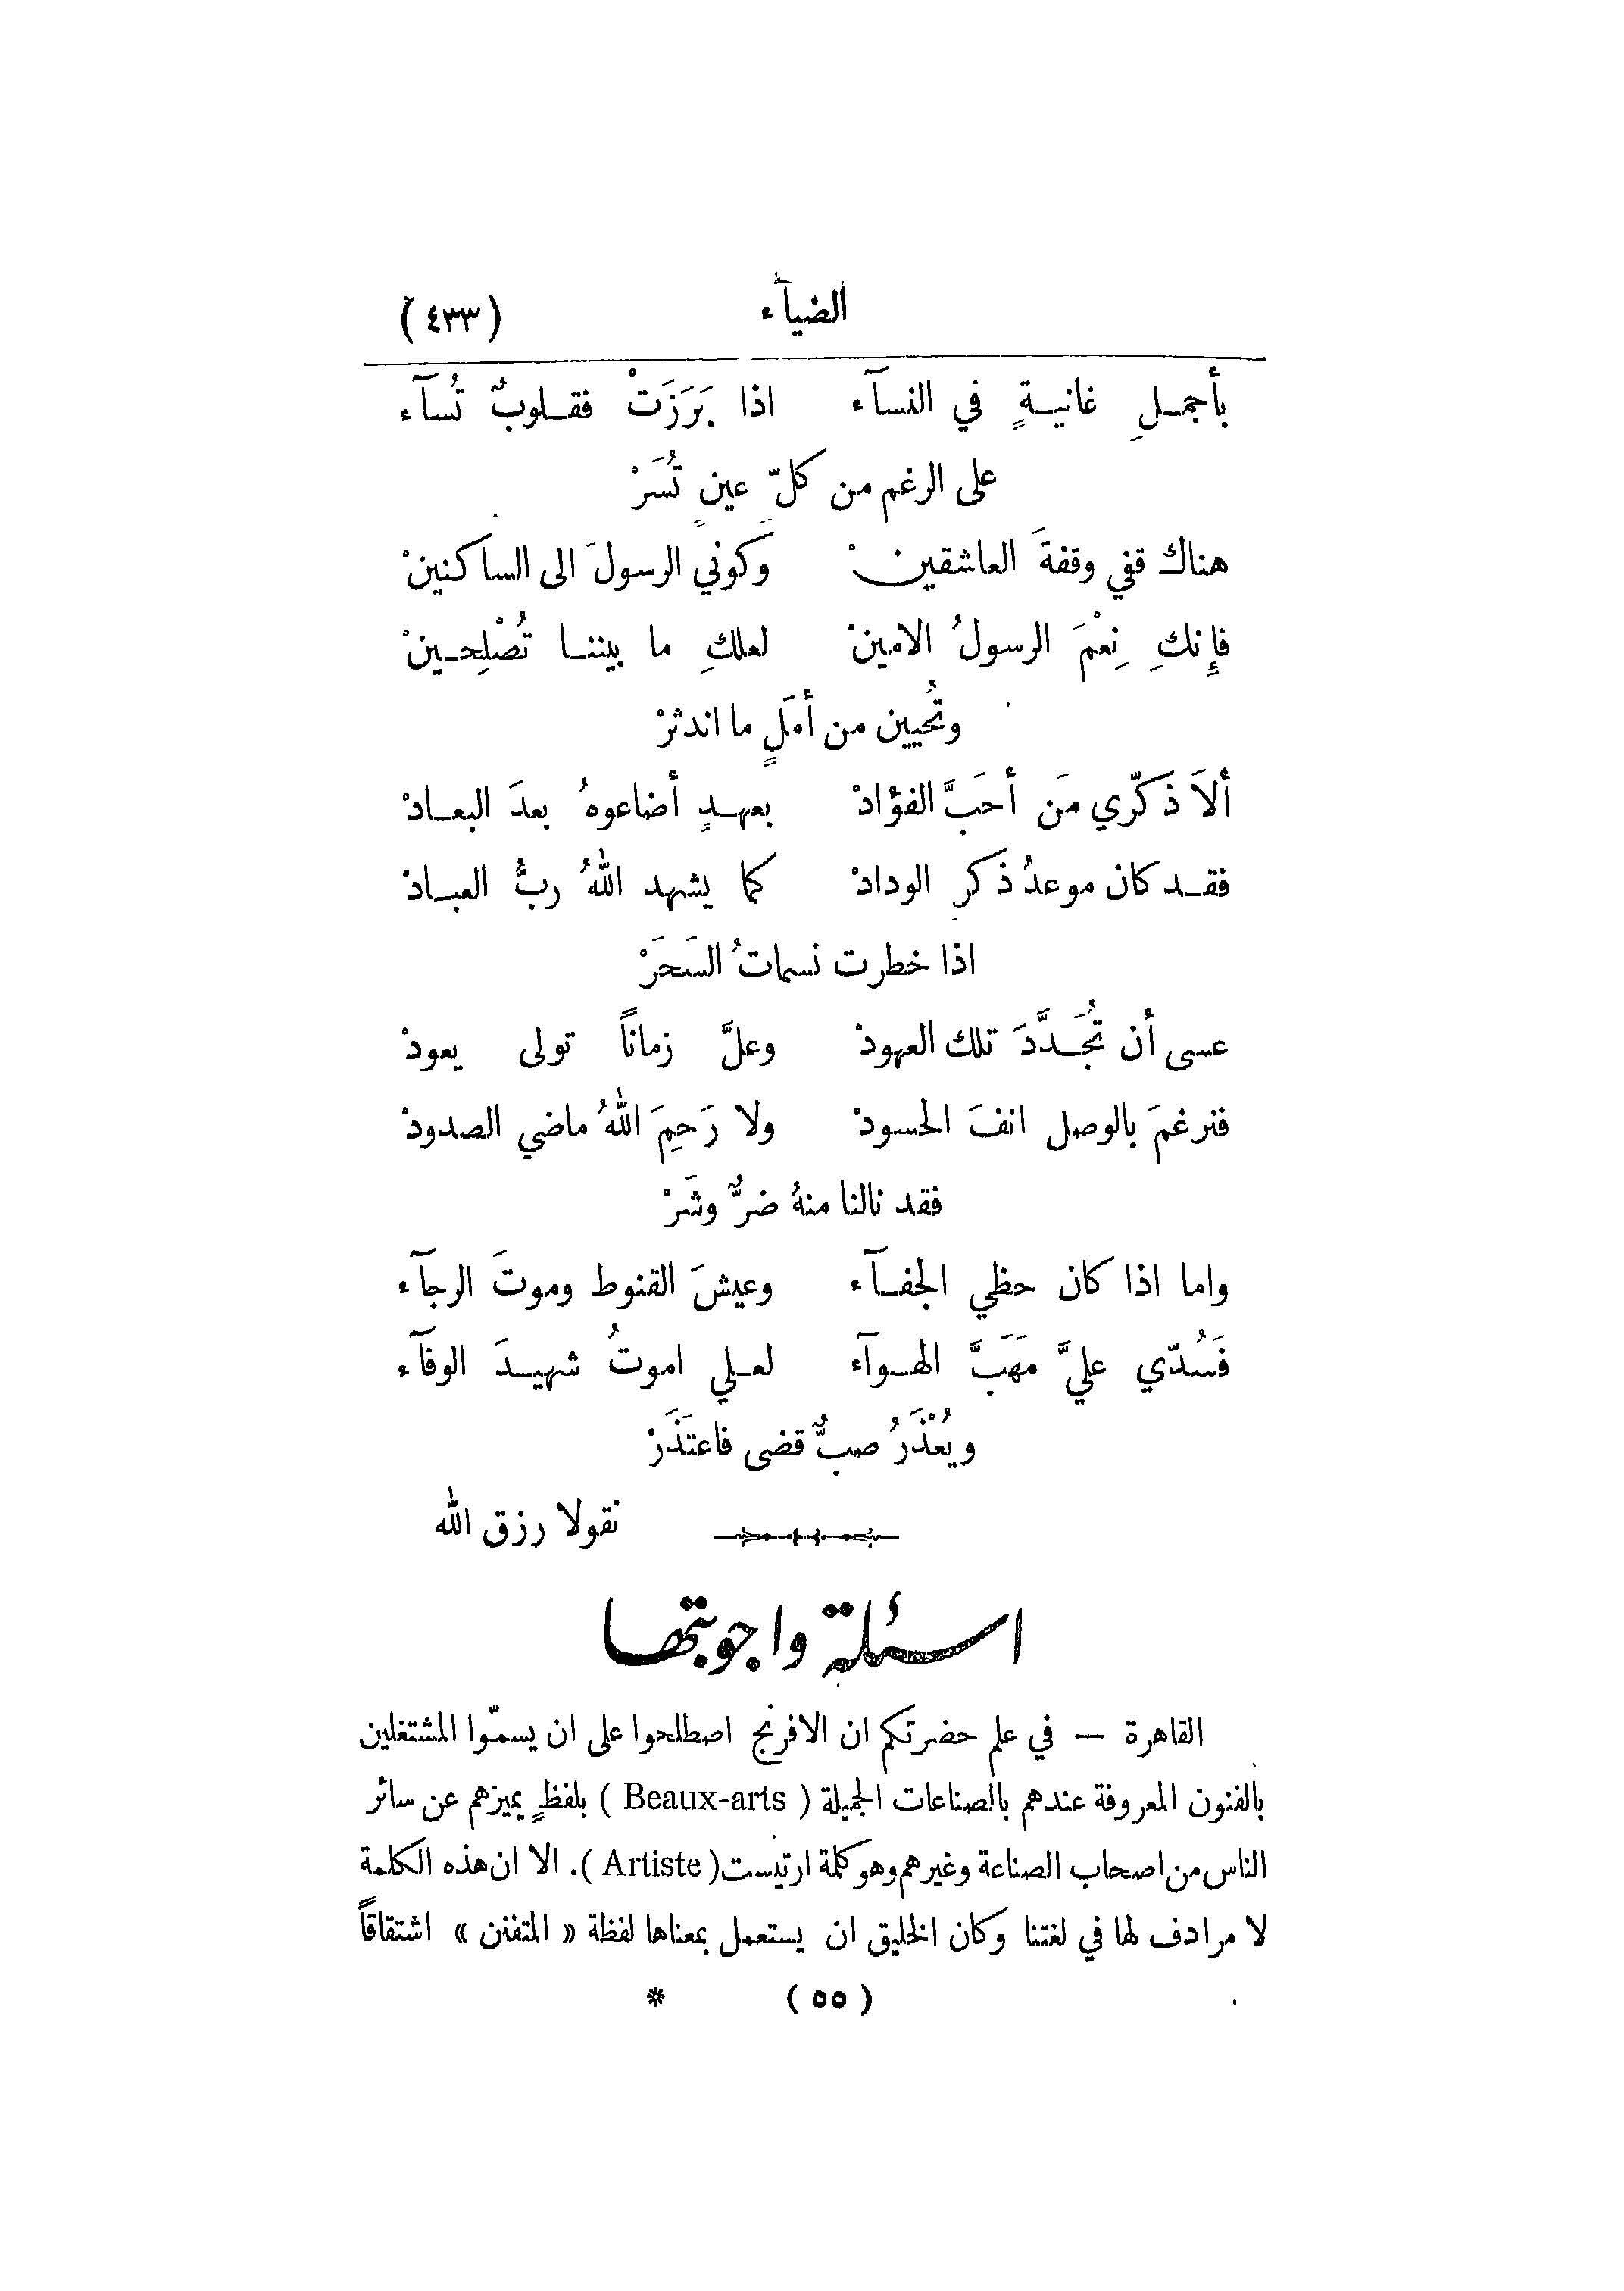 الضيآء
(٤٣٣)
بأجمـلِ غانيـةٍ في النسآء اذا بَرَزَتْ فقـلوبٌ تُسآء
على الرغم من كلّ عينٍ تُسَرْ
هناك قفي وقفةَ العاشقينْ وكوني الرسولَ الى الساكنينْ
فإِنكِ نِعْمَ الرسولُ الامينْ لعلكِ ما بيننـا تُصْلِحـينْ
وتُحيين من أملٍ ما اندثرْ
ألاَ ذَكّري مَن أحَبَّ الفؤادْ بعهـدٍ أضاعوهُ بعدَ البعـادْ
فقـد كان موعدُ ذكر الودادْ كما يشهد اللهُ ربُّ العبـادْ
اذا خطرت نسماتُ السَحَرْ
عسى أن تُجَـدَّدَ تلك العهودْ وعلَّ زماناً تولى يعودْ
فنرغمَ بالوصل انفَ الحسودْ ولا رَحِمَ اللهُ ماضي الصدودْ
فقد نالنا منهُ ضرٌّ وشَرْ
واما اذا كان حظي الجفـآء وعيشَ القنوط وموتَ الرجآء
فَسُدّي عليَّ مَهَبَّ الهـوآء لعـلي اموتُ شهيـدَ الوفآء
ويُعْذَرُ صبٌّ قضى فاعتَذَرْ
نقولا رزق الله
اسئلة واجوبتها
القاهرة — في علم حضرتكم ان الافرنج اصطلحوا على ان يسمّوا المشتغلين
بالفنون المعروفة عندهم بالصناعات الجميلة ( Beaux-arts ) بلفظٍ يميزهم عن سائر
الناس من اصحاب الصناعة وغيرهم وهو كلمة ارتيست ( Artiste ). الا ان هذه الكلمة
لا مرادف لها في لغتنا وكان الخليق ان يستعمل بمعناها لفظة « المتفنن » اشتقاقاً
(٥٥) *